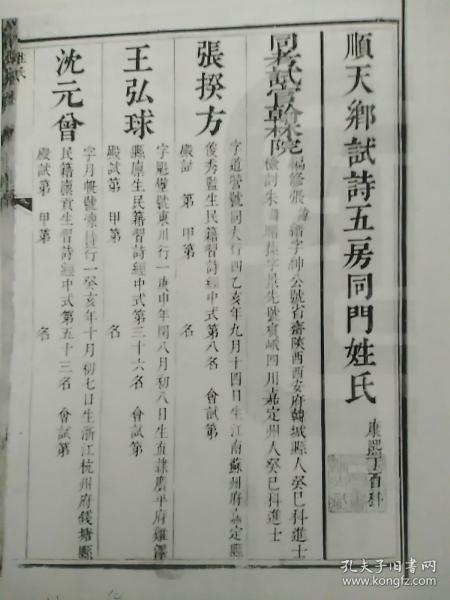 順天鄉試詩五房同門姓氏
康熙丁酉科
同考試官翰林院
編修張 字紳公號省齋陝西西安府韓城縣人癸巳科進士
檢討朱 字 先號 峨四川嘉定州人癸巳科進士
張揆方
字道營號同夫行四乙亥年九月十四日生江南蘇州府嘉定縣
俊秀監生民籍習詩經中式第八名 會試第 名
殿試第 甲第 名
王弘球
字 號東川行一庚申年閏八月初八日生直隸廣平府雞澤
縣廩生民籍習詩經中式第三十六名 會試第 名
殿試第 甲第 名
沈元曾
字月 號 行一癸亥年十月初七日生浙江杭州府錢塘縣
民籍廩貢生習詩經中式第五十三名 會試第 名
殿試第 甲第 名
姓氏
孔夫子旧书网
www.kongfz.com